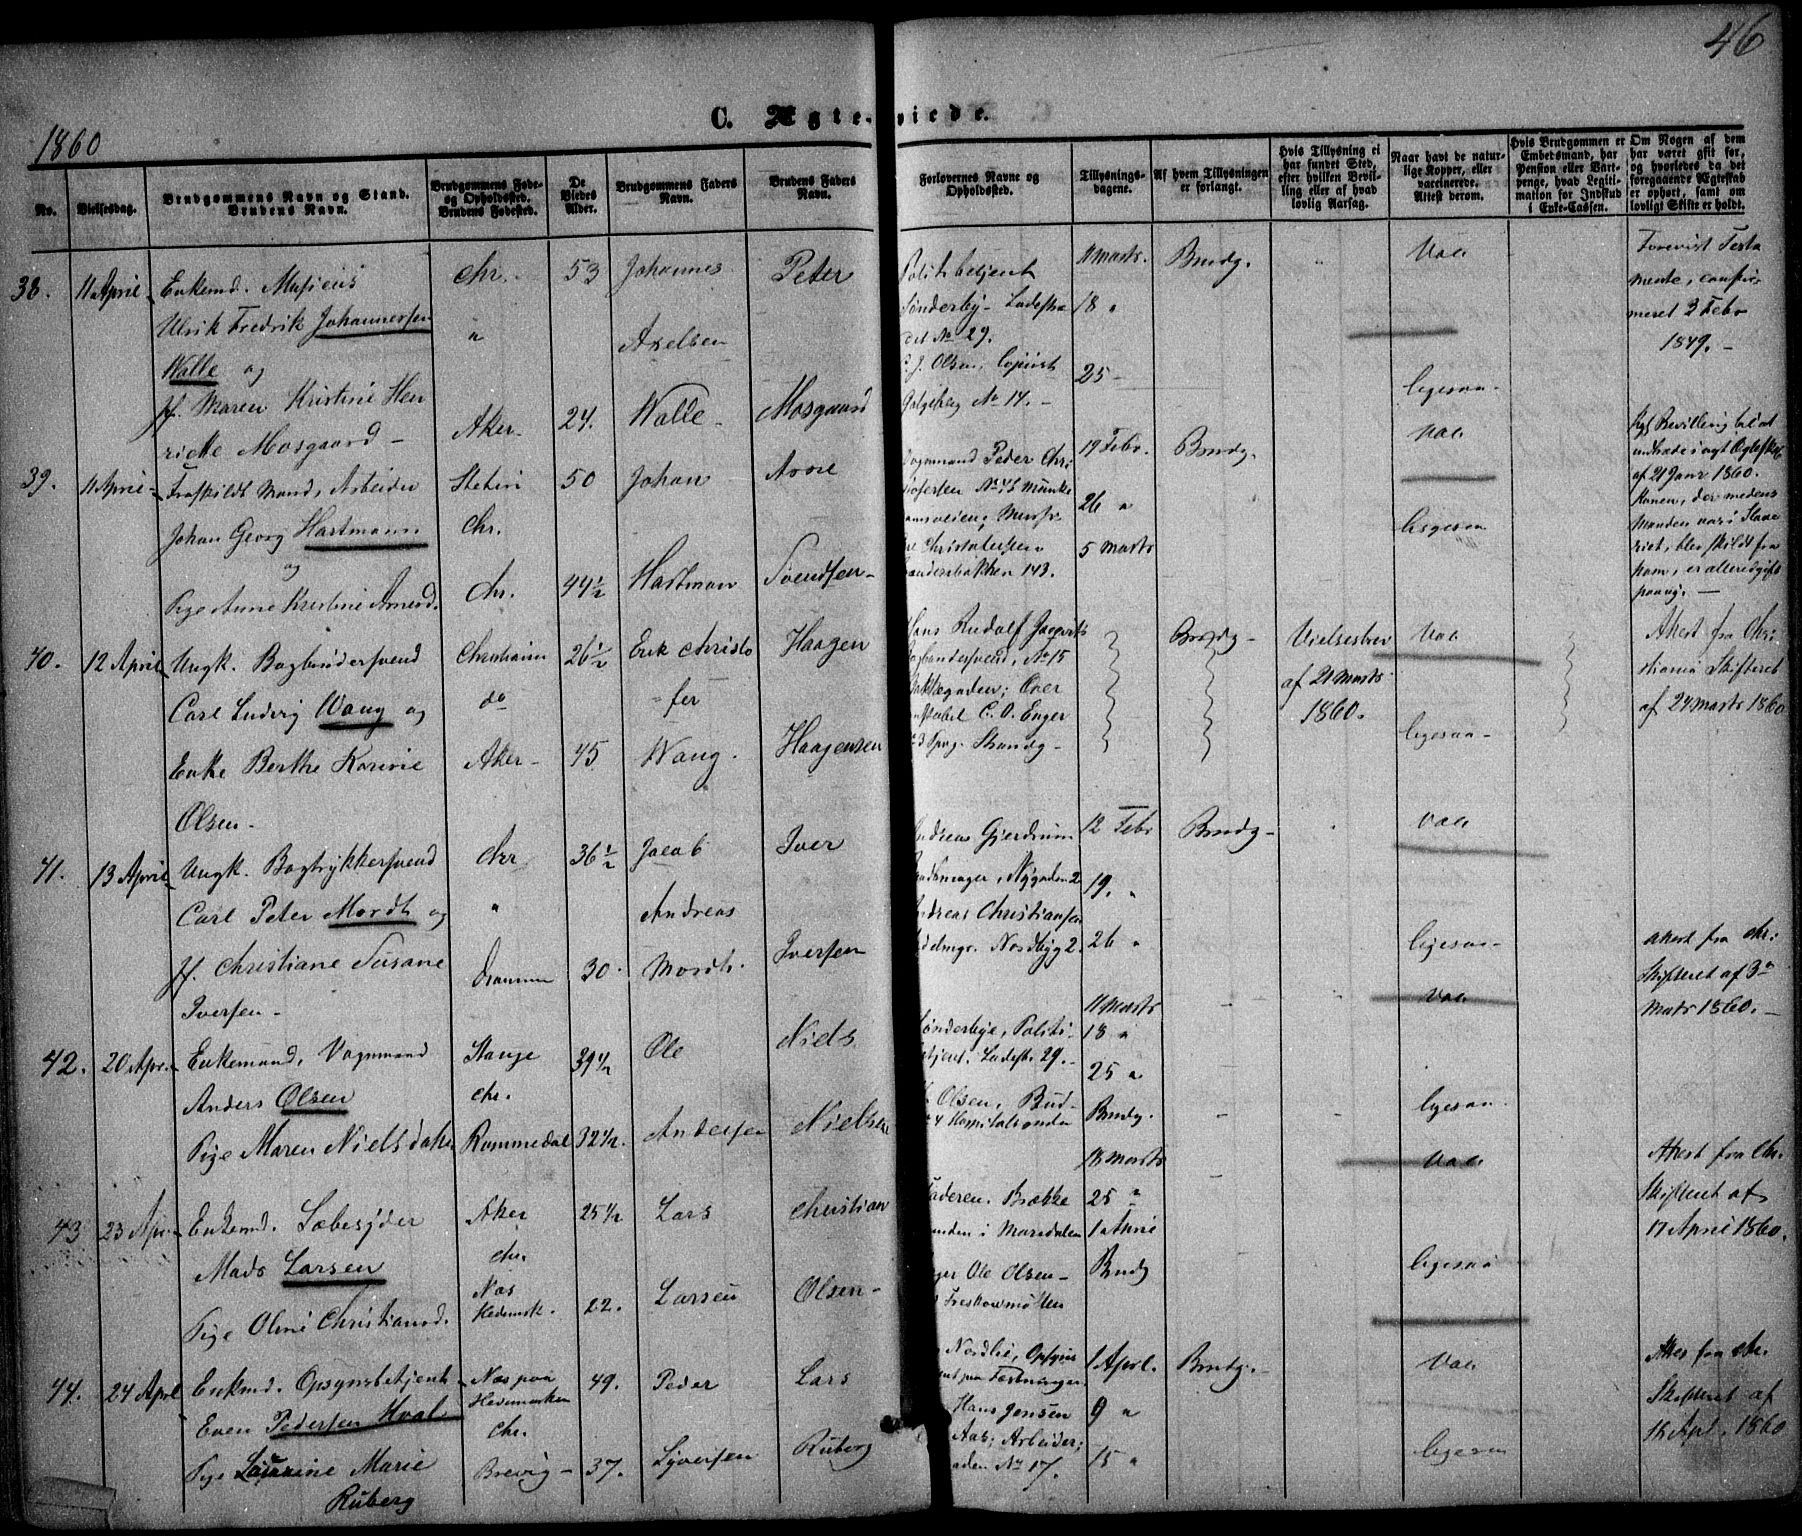 46
1860
C. Ægte-viede.
No.
Vielsesdag.
Brudgommens Navn og Stand.
Brudens Navn.
Brudgommens Føde-
og Opholdssted.
Brudens Fødested.
De
Viedes
Alder.
Brudgommens Faders
Navn.
Brudens Faders
Navn.
Forlovernes Navne og
Opholdssted.
Tillysnings-
dagene.
Af hvem Tillysningen
er forlangt.
Hvis Tillysning ei
har fundet Sted,
efter hvilken Bevil-
ling eller af hvad
lovlig Aarsag.
Naar havt de natur-
lige Kopper, eller
vaccinerede.
Attest derom.
Hvis Brudgommen er
Embetsmand, har
Pension eller Vart-
penge, hvad Legiti-
mation for Indskud
i Enke-Cassen.
Om Nogen af dem
har været gift før,
og hvorledes da det
foregaaende Ægteskab
er ophørt, samt om
lovligt Skifte er holdt.
38. 11 April Enkemd. Musicus Chr. 53 Johannes Peter
Ulrik Fredrik Johannessen " Axelsen
Walle og
Jf. Maren Kristine Hen
riette Mosgaard - Aker. 24. Walle - Mosgaard
Politibetjent 11 Marts. Brudg. Vac.
Sønderby - Ladestræ 18 "
det No 29.
J. Olsen, Copiist 25 - ligesaa
No 14. -
Forevist Testa
mente, confir
meret 2 Febr
1849. -
39. 11 April Fraskildt Mand, Arbeider Stetin 50 Johan Arne
Johan Georg Hartmann Chr.
og
Pige Anne Kristine Arnesd. Chr. 44½ Hartman Svendsen -
Vognmand Peder Chri 19 Febr. Brudg. Vac.
26 "
5 Marts ligesaa
143.
Kgl Bevilling til at
indtræde i nyt Ægteskab
af 21 Janr 1860.
Konen, der medens
Manden var i Slave
riet, blev skildt fra
ham, er allerede gift
paany. -
40. 12 April Ungk. Bogbindersvend Christiania 26½ Erik Christo Haagen
Carl Ludvig Waug og do fer
Enke Berthe Karine Aker - 45 Waug. Haagensen
Olsen -
Hans Rudolf Brudg - Vielsesbrev Vac
Bogbindersvend, No 15 af 21 Marts
1860. ligesaa -
C. O. Enger
Attest fra Chri
stiania Skifteret
af 24 Marts 1860
41. 13 April Ungk. Bogtrykkersvend Chr 36½ Jacob Iver
Carl Peter Mordt og " Andreas
Jf. Christiane Susane Drammen 30. Mordt. Iversen
Iversen -
Andreas Gjerdrum 12 Febr Brudg - Vac
Nygaden 2 19. "
Andreas Christiansen
Nordbyg 2. 26 " ligesaa -
42. 20 Apr. Enkemand, Vognmand Stange 39½ Ole Niels
Anders Olsen Chr.
Pige Maren Nielsdatter Rommedal 32½. Andersen Nielsen
11 Marts Vac
Sønderbye, Politi 18 "
betjent. Ladest. 29. - 25 "
Olsen, Bud - Brudg. ligesaa
4 Hospitalsgaden
Attest fra Chr:
Skifteret af 3
Marts 1860. -
43 23 Apr. Enkemd. Sæbesyder Aker 25½ Lars Christian
Mads Larsen Chr.
Pige Oline Christiansd. Næs Hedemk. 22. Larsen Olsen -
18 Marts Vac
Faderen. Brække 25 "
i Maridalen 1 April
Ole Olsen - Brudg ligesaa
Attest fra Chr.
Skifteret af
17 April 1860.
44. 24 April Enkemd. Opsynsbetjent Næs paa 49. Peder Lars
Even Pedersen Hval Hedemarken
Chr.
Pige Laurine Marie Brevig - 37. Syversen Ruberg
Ruberg
Nordlie, Opsyns 1 April. Brudg. - Vac
paa Fæstningen
Hans Jensen 9 "
Aas, Arbeider;
No 17. 15 " ligesaa
Attest fra Chr.
Skifteret af
18 Apl. 1860